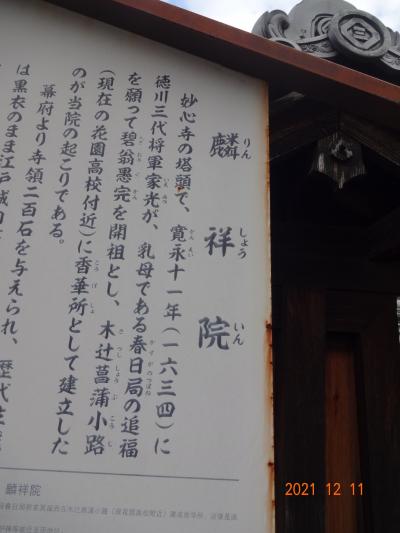 麟祥院
りんしょういん
妙心寺の塔頭で、寛永十一年(一六三四)に
徳川三代将軍家光が、乳母である春日局の追福
を願って碧翁愚完を開祖とし、木辻菖蒲小路
(現在の花園高校付近)に香華所として建立した
のが当院の起こりである。
幕府より寺領二百石を与えられ、歴代住
は黒衣のまま江戸城
麟祥院
2021 12 11